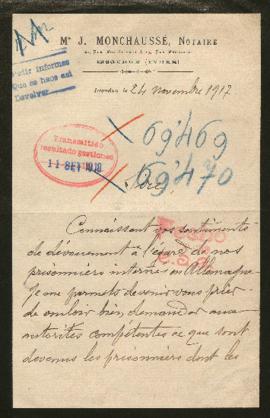 Me J. MONCHAUSSÉ, NOTAIRE
Pedir informes
Que se hace así
Devolver
le 24 novembre 1917
69'469
69'470
Transmitido
resultado gestiones
11 SET 1918
Sire,
Connaissant vos sentiments
de dévouement à l'égard de nos
prisonniers internés en Allemagne
Je me permets de venir vous prier
de vouloir bien demander aux
autorités compétentes ce que sont
devenus les prisonniers dont les